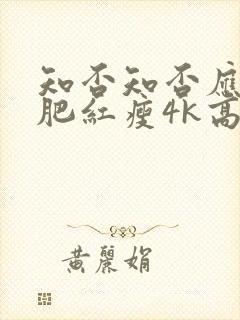 知否知否應
肥紅瘦4k高
黃麗娟